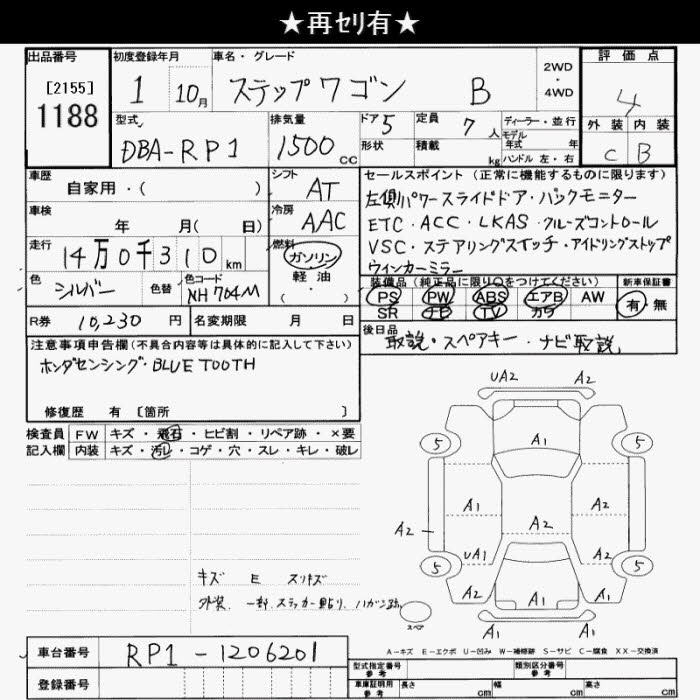 ★再セリ有★
出品番号
[2155]
1188
初度登録年月
1 10月
車名・グレード
ステップワゴン B
2WD
・
4WD
評価点
4
外装 内装
C B
型式
DBA-RP1
排気量
1500 cc
ドア 5
形状
定員 7 人
積載 kg
ディーラー・並行
モデル
年式 年
ハンドル 左・右
車歴
自家用・( )
シフト
AT
車検
年 月( 日)
冷房
AAC
走行
14万0千310 km
燃料
ガソリン
軽油
( )
色
シルバー
色替
色コード
NH704M
R券 10,230 円
名変期限 月 日
セールスポイント (正常に機能するものに限ります)
左側パワースライドドア・バックモニター
ETC・ACC・LKAS・クルーズコントロール
VSC・ステアリングスイッチ・アイドリングストップ
ウインカーミラー
装備品 (純正品に限り○をつけてください)
新車保証書
PS PW ABS エアB AW
SR ナビ TV カワ
有・無
後日品
取説・スペアキー・ナビ取説
注意事項申告欄(不具合内容等は具体的に記入して下さい)
ホンダセンシング・BLUETOOTH
修復歴 有 [箇所 ]
検査員
記入欄
FW キズ・飛石・ヒビ割・リペア跡・×要
内装 キズ・汚レ・コゲ・穴・スレ・キレ・破レ
UA2 A2
5 A1 5
A1 A1
A2 A2
UA1 A1
5 5
A2 A1 A2
A1
スペア
キズ E スリキズ
外装 一部ステッカー貼り、ハガシ跡
A-キズ E-エクボ U-凹み W-補修跡 S-サビ C-腐食 XX-交換済
車台番号
RP1-1206201
登録番号
型式指定番号
参考
類別区分番号
参考
車庫証明用
参考
長さ cm
幅 cm
高さ cm